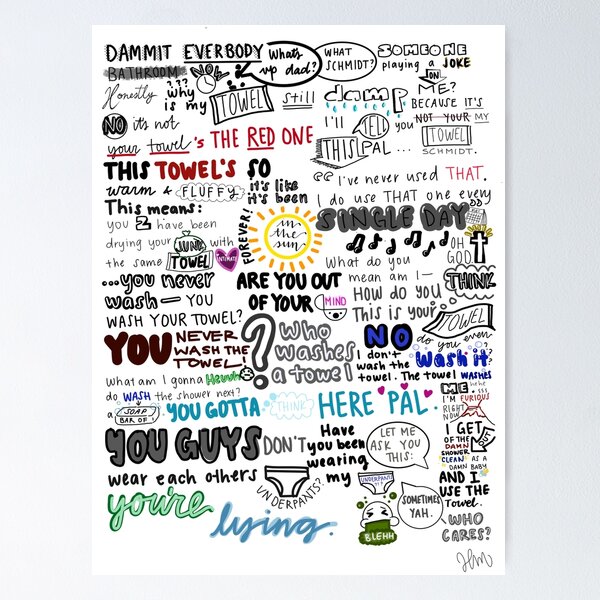 DAMMIT EVERBODY
What's up dad?
WHAT SCHMIDT?
SOMEONE playing a JOKE ON ME?
BATHROOM
NOW
Honestly ??? why is my TOWEL still damp
BECAUSE IT'S NOT YOUR MY TOWEL SCHMIDT.
NO it's not your towel's THE RED ONE
I'll TELL you THIS PAL ...
THIS TOWEL'S SO warm & FLUFFY it's like it's been FOREVER! in the sun
I've never used THAT.
I do USE THAT one every SINGLE DAY
This means:
you 2 have been drying your JUNK with the same TOWEL
INTIMATE
OH GOD
...you never wash — YOU WASH YOUR TOWEL?
ARE YOU OUT OF YOUR MIND
What do you mean am I—
HOW DO YOU THINK
This is your TOWEL
YOU NEVER WASH THE TOWEL!
? who washes a towel
NO I don't wash the towel. The towel WASHES ME.
do you even Wash it
hehe
What am I gonna do WASH the shower next?
a BAR OF SOAP
YOU GOTTA THINK HERE PAL.
I'M FURIOUS RIGHT NOW
I GET OUT OF THE DAMN SHOWER CLEAN AS A DAMN BABY
AND I USE THE Towel.
WHO CARES?
YOU GUYS DON'T wear each others UNDERPANTS?
Have you been wearing my UNDERPANTS??
LET ME ASK YOU THIS:
SOMETIMES YAH.
BLEHH
you're lying.